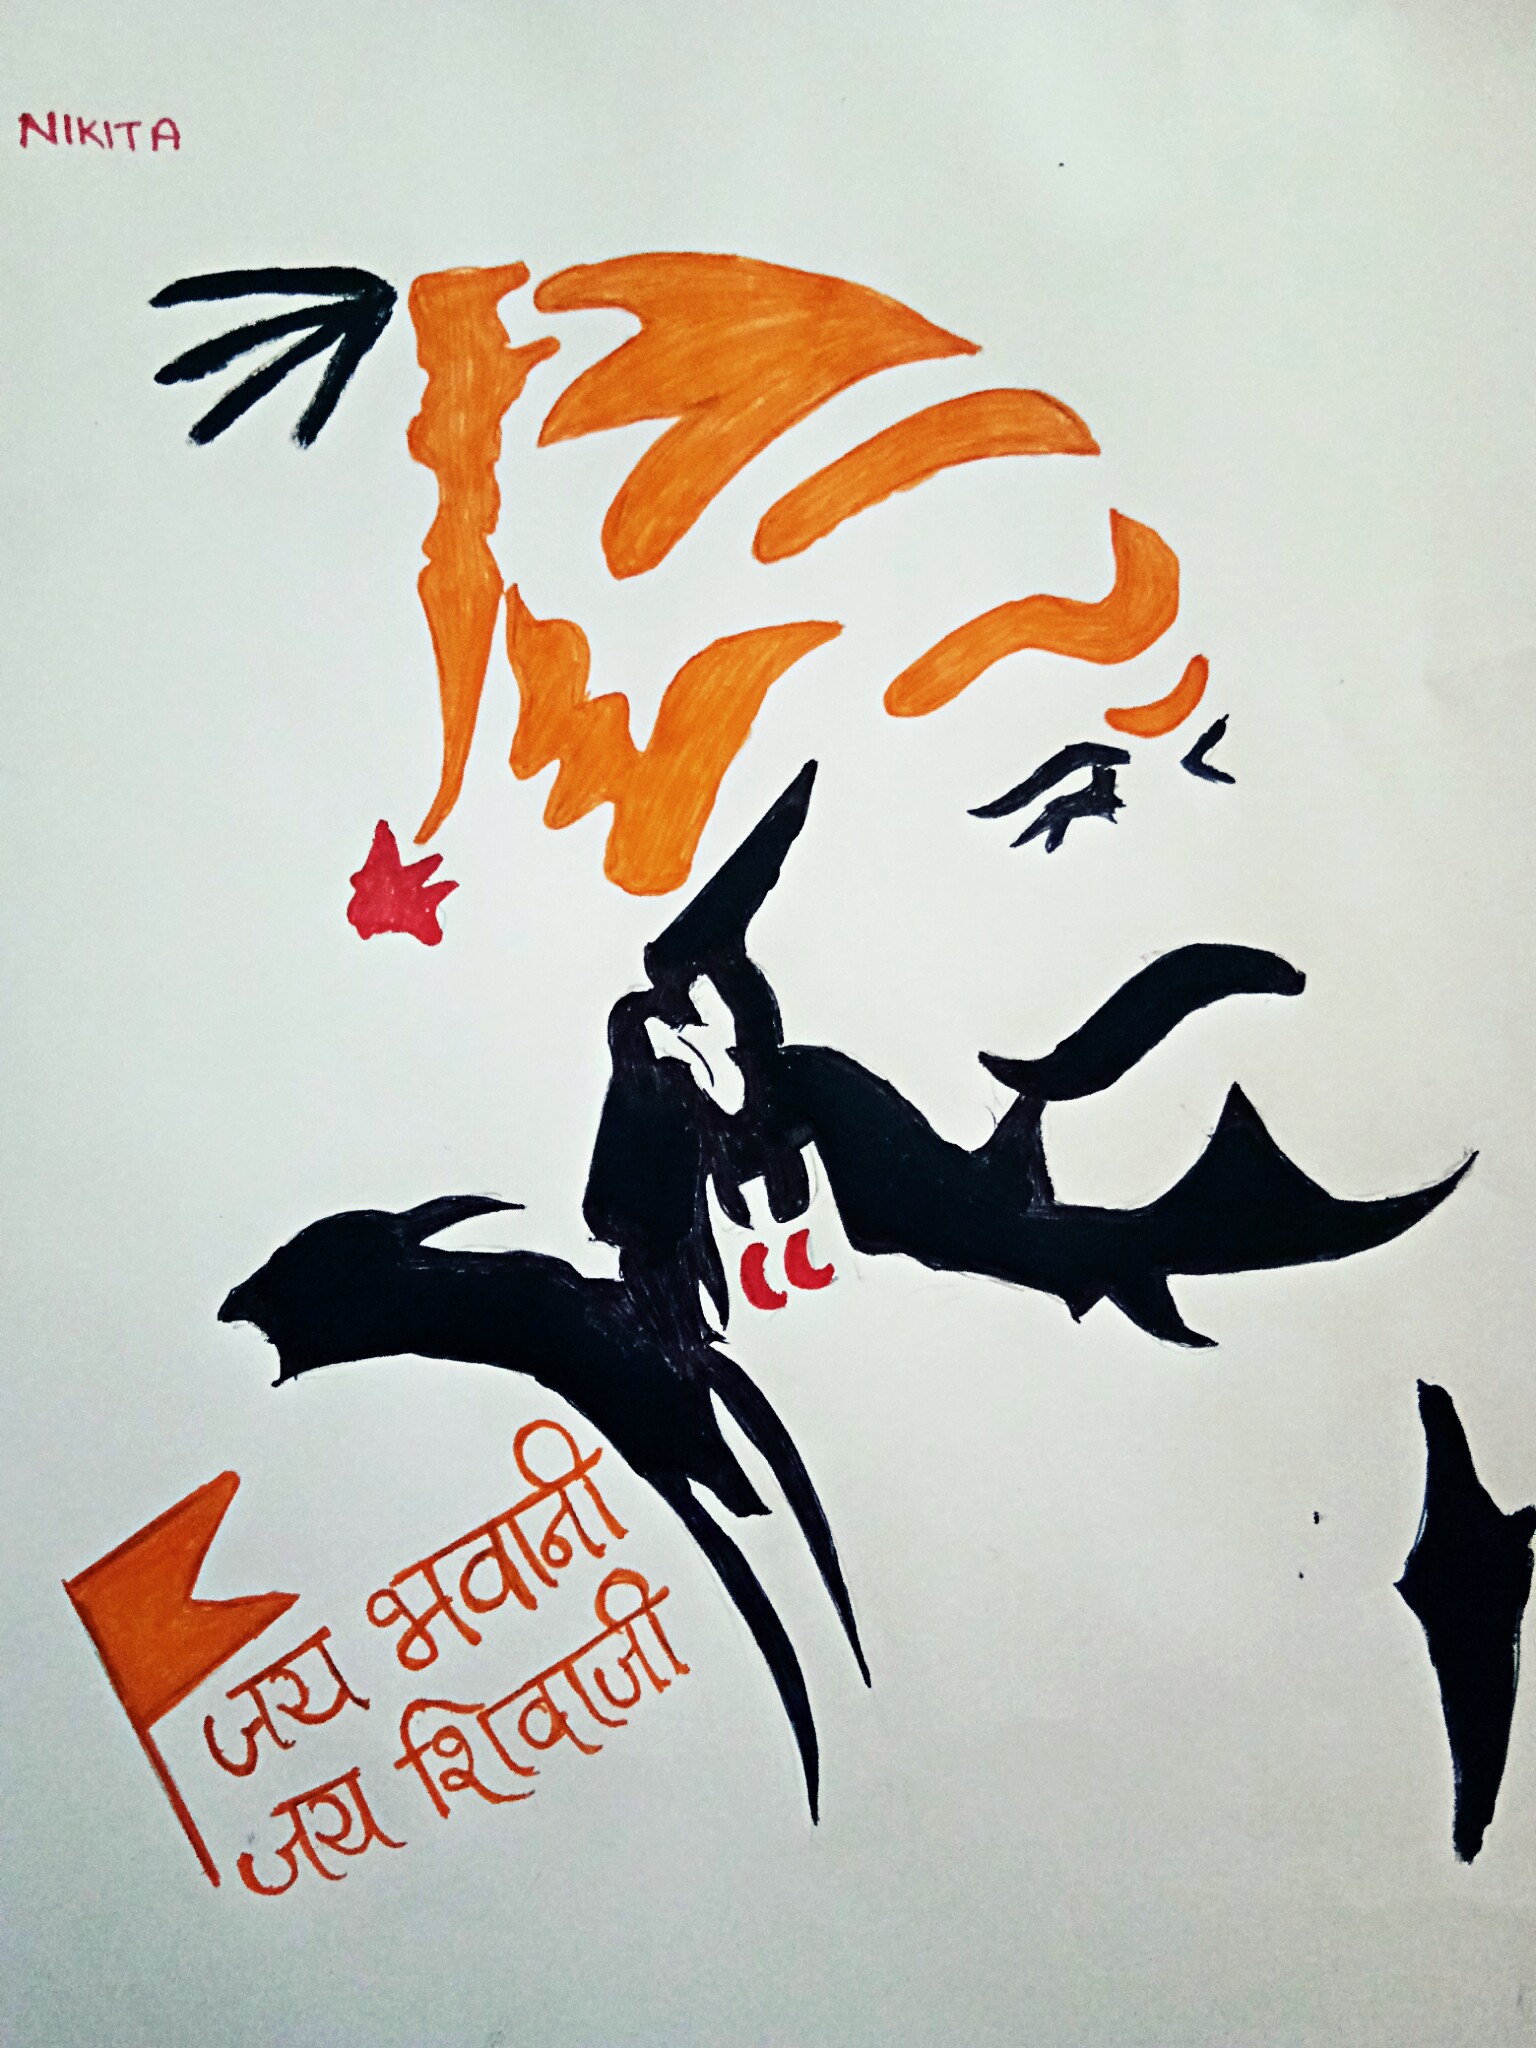 NIKITA
जय भवानी
जय शिवाजी